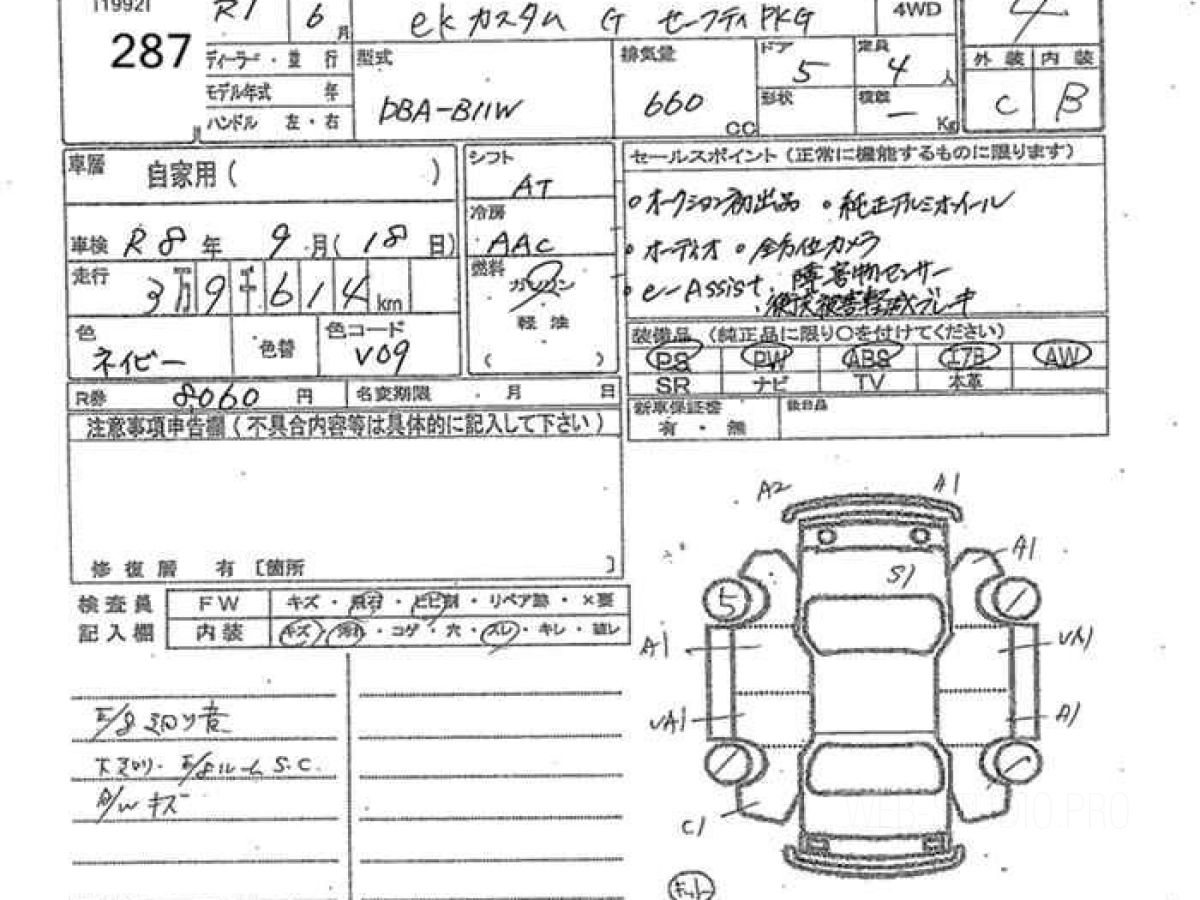 [1992]
287
R1 6 月
ekカスタム G セーフティPKG
4WD
4
ディーラー・並行
モデル年式 年
ハンドル 左・右
型式
DBA-B11W
排気量
660 CC
ドア 5
定員 4 人
形状
積載 — Kg
外装 内装
C B
車歴 自家用( )
車検 R8年 9月(18日)
走行 3万9千614km
色 ネイビー
色替
色コード V09
シフト AT
冷房 AAC
燃料 ガソリン
軽油
( )
R券 8,060 円
名変期限 月 日
セールスポイント(正常に機能するものに限ります)
○オークション初出品 ○純正アルミホイール
○オーディオ ○全方位カメラ
○e-Assist. 障害物センサー
・衝突被害軽減ブレーキ
装備品 (純正品に限り○を付けてください)
PS PW ABS エアB AW
SR ナビ TV 本革
新車保証書 後日品
有・無
注意事項申告欄(不具合内容等は具体的に記入して下さい)
修復歴 有〔箇所 〕
検査員 FW キズ・飛石・ヒビ割・リペア跡・×要
記入欄 内装 キズ・汚れ・コゲ・穴・スレ・キレ・破レ
E/g廻り音
下廻り・E/gルームS.C.
A/Wキズ
A2 A1
A1
S1
5
A1 UA1
UA1 A1
C1